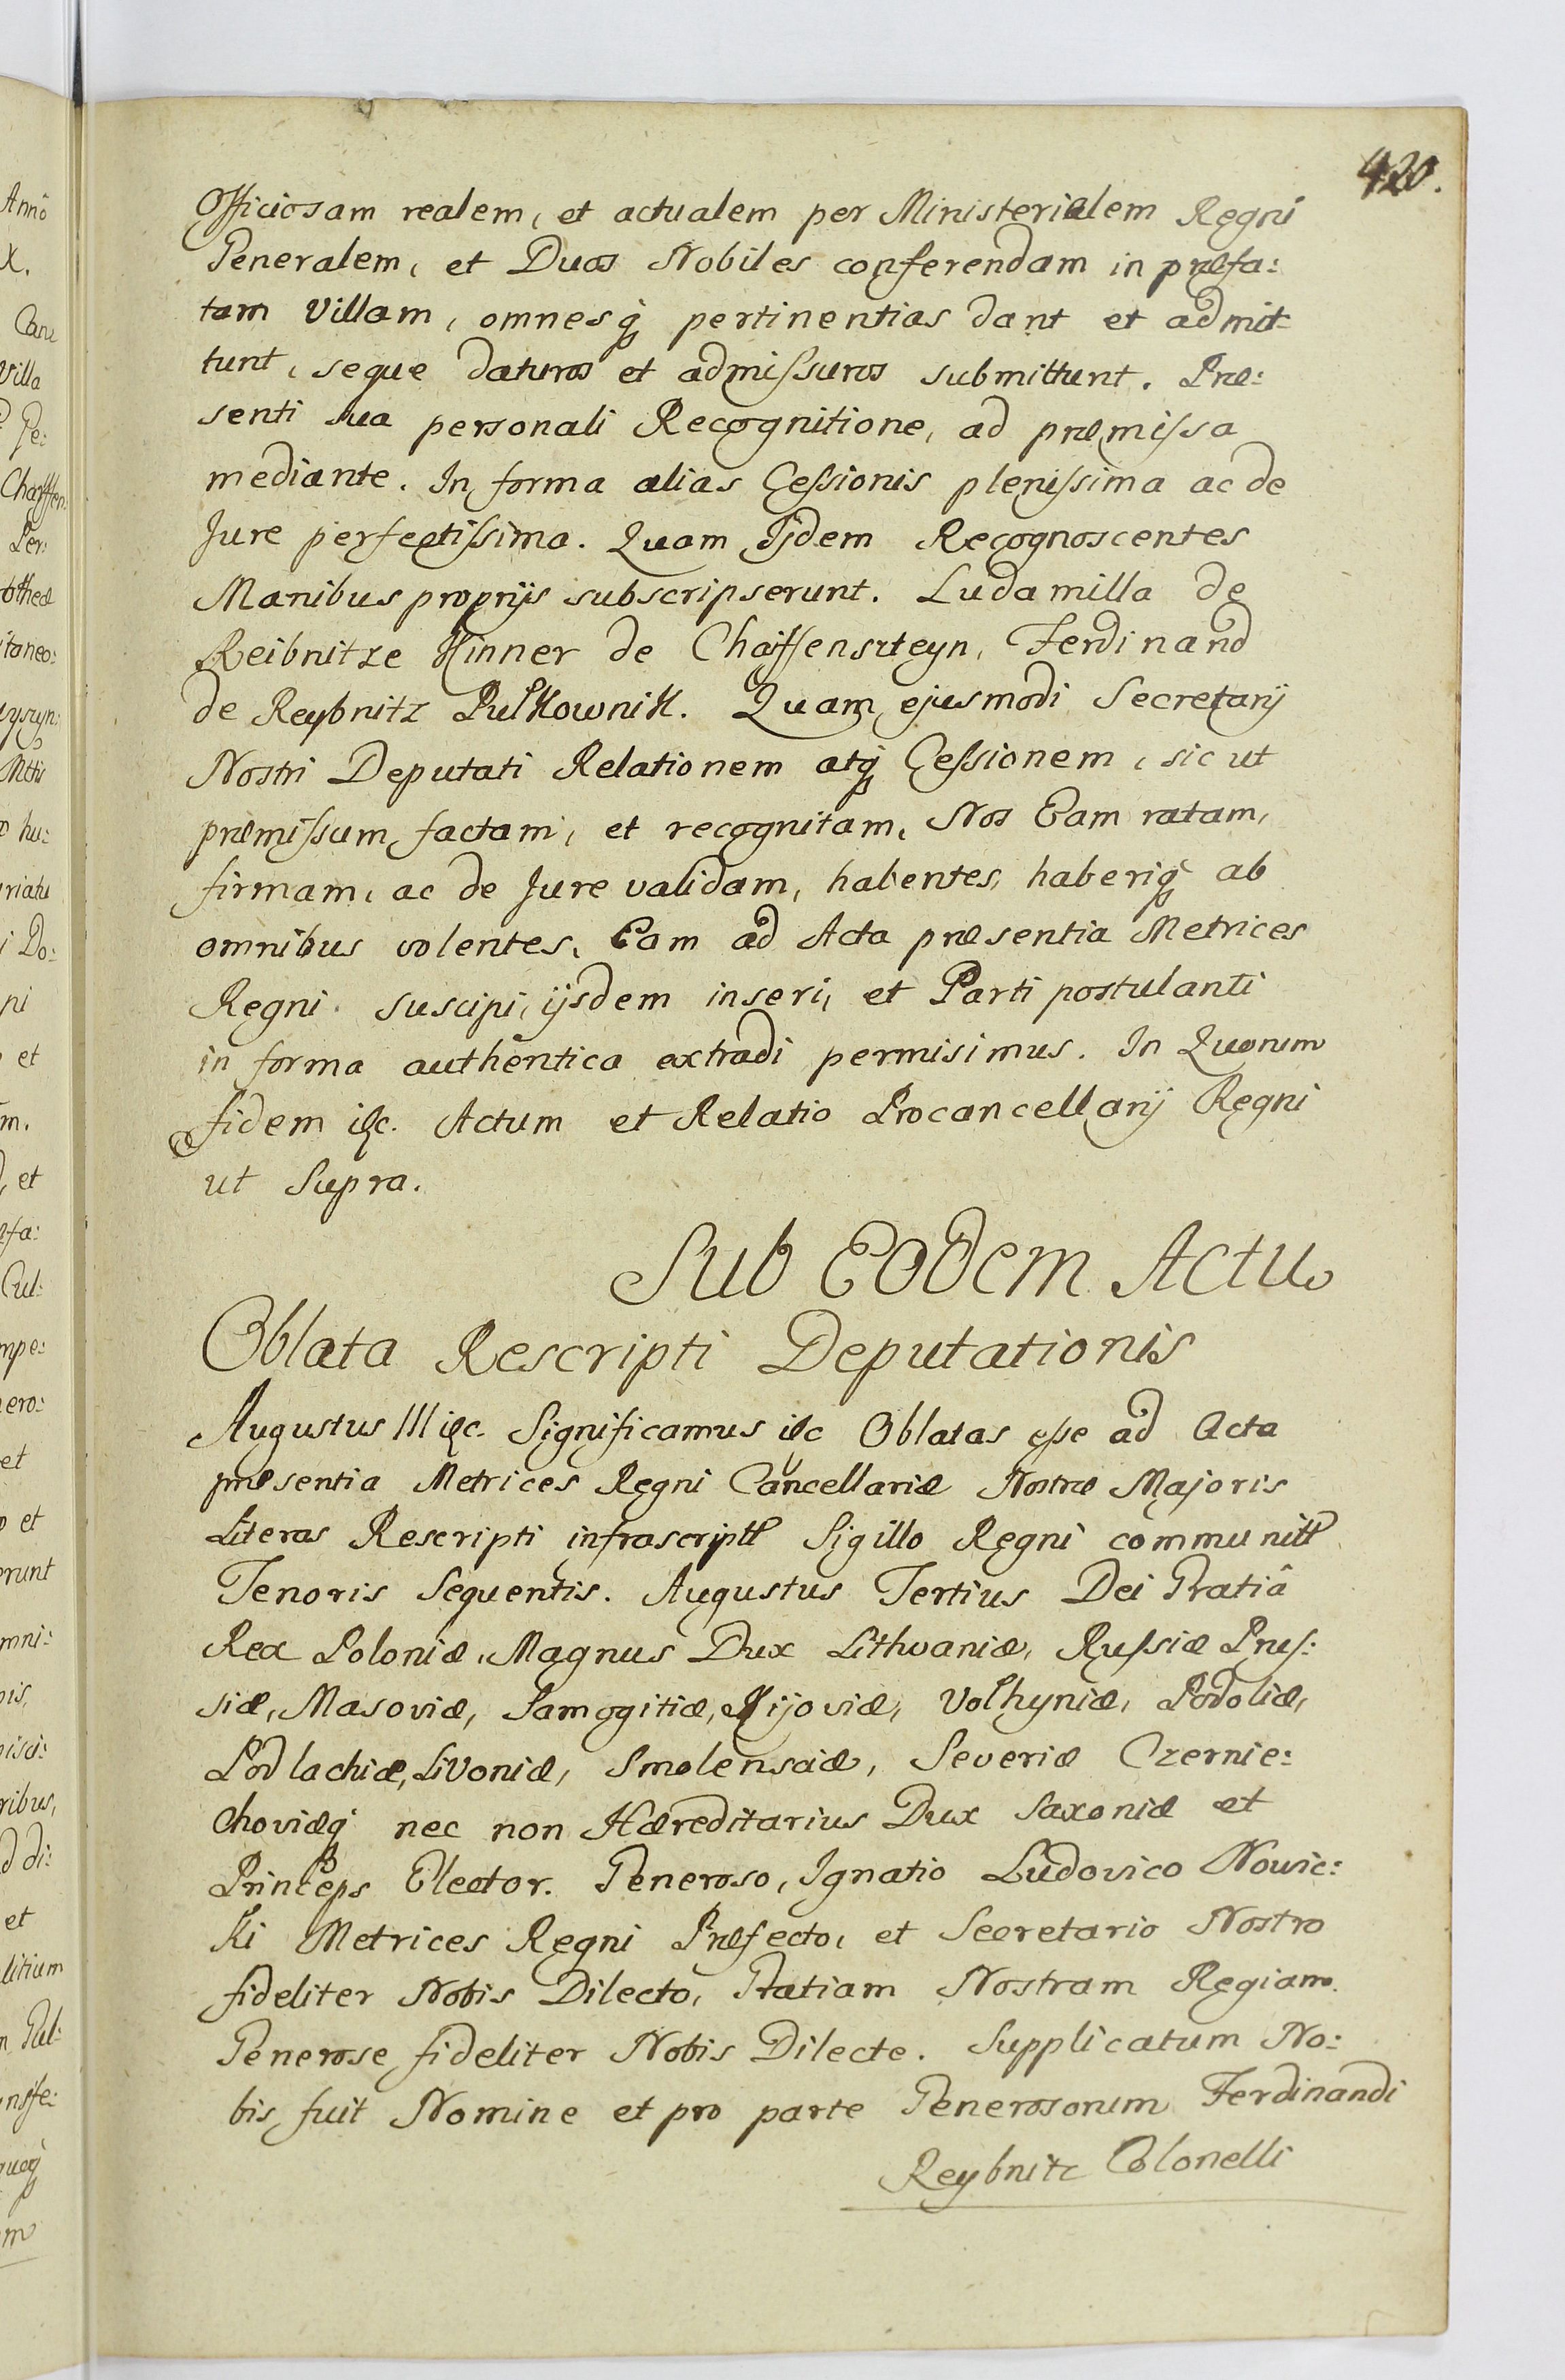 420.
Officiosam realem, et actualem per Ministerialem Regni
Generalem, et Duos Nobiles conferendam in præfa:
tam Villam, omnesq₃ pertinentias dant et admit:
tunt, seque daturos et admiſsuros submittunt. Præ:
senti sua personali Recognitione, ad præmiſsa
mediante. In forma alias Ceſsionis pleniſsima ac de
Jure perfectiſsima. Quam Ijdem Recognoscentes
Manibus proprijs subscripserunt. Ludamilla de
Reibnitze Hinner de Chaffensrteyn, Ferdinand
de Reybnitz Pułkownik. Quam ejusmodi Secretarij
Nostri Deputati Relationem atq₃ Ceſsionem, sic ut
præmiſsum factam, et recognitam, Nos Eam ratam,
firmam, ac de Jure validam, habentes, haberiq₃ ab
omnibus volentes, Eam ad Acta præsentia Metrices
Regni suscipi, ijsdem inseri, et Parti postulanti
in forma authentica extradi permisimus. In Quorum
fidem &c. Actum et Relatio Procancellarij Regni
ut Supra.
Sub Eodem Actu
Oblata Rescripti Deputationis
Augustus III &c. Significamus &c Oblatas eſse ad Acta
præsentia Metrices Regni Cancellariæ Nostræ Majoris
Literas Rescripti infrascriptt Sigillo Regni communitt
Tenoris Sequentis. Augustus Tertius Dei Gratiâ
Rex Poloniæ, Magnus Dux Lithvaniæ, Ruſsiæ Pruſ:
siæ, Masoviæ, Samogitiæ, Kijoviæ, Volhyniæ, Podoliæ,
Podlachiæ, Livoniæ, Smolensciæ, Severiæ Czernie:
choviæq₃ nec non Hæreditarius Dux Saxoniæ et
Princeps Elector. Generoso, Ignatio Ludovico Nowic:
ki Metrices Regni Præfecto, et Secretario Nostro
fideliter Nobis Dilecto, Gratiam Nostram Regiam.
Generose fideliter Nobis Dilecte. Supplicatum No:
bis fuit Nomine et pro parte Generosorum Ferdinandi
Reybnitz Colonelli